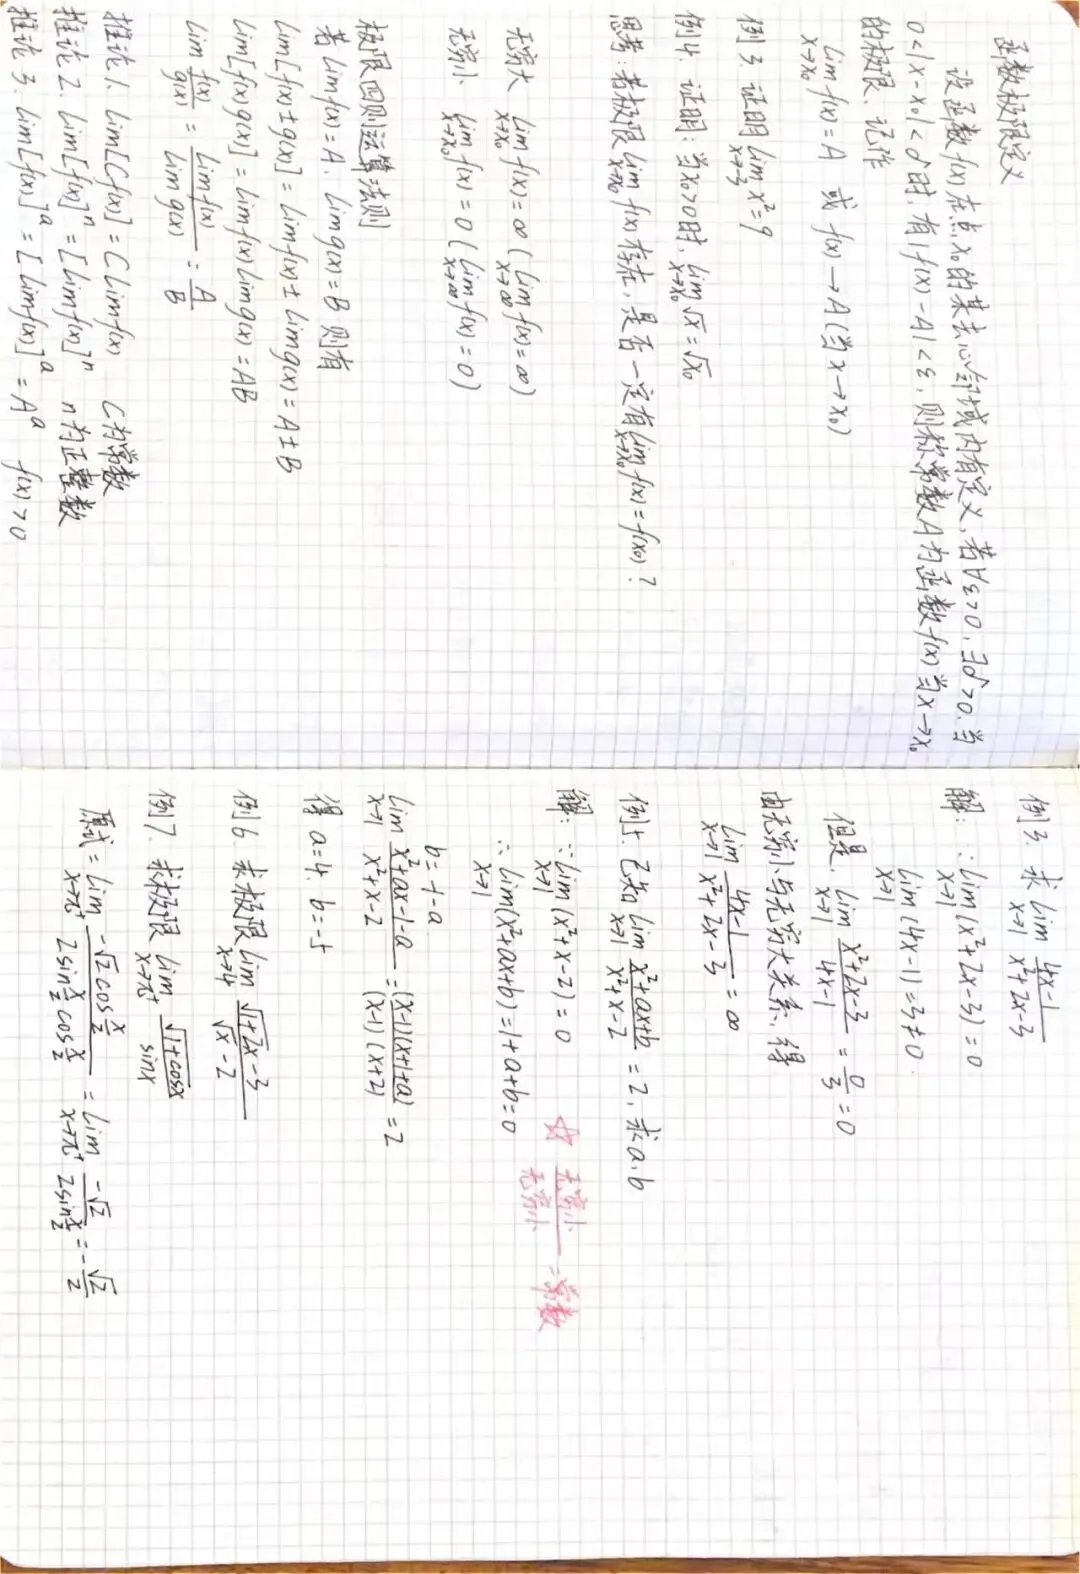 函数极限定义
设函数f(x)在点x₀的某去心邻域内有定义,若∀ε>0,∃δ>0,当
0<|x-x₀|<δ时,有|f(x)-A|<ε,则称常数A为函数f(x)当x→x₀
的极限,记作
lim_{x→x₀} f(x)=A 或 f(x)→A(当x→x₀)
例3 证明 lim_{x→-3} x²=9
例4. 证明:当x₀>0时,lim_{x→x₀} √x=√x₀
思考:若极限 lim_{x→x₀} f(x)存在,是否一定有 lim_{x→x₀} f(x)=f(x₀)?
无穷大 lim_{x→x₀} f(x)=∞ ( lim_{x→∞} f(x)=∞)
无穷小 lim_{x→x₀} f(x)=0 ( lim_{x→∞} f(x)=0)
极限四则运算法则
若limf(x)=A, limg(x)=B 则有
lim[f(x)±g(x)]=limf(x)±limg(x)=A±B
lim[f(x)g(x)]=limf(x)limg(x)=AB
lim f(x)/g(x) = limf(x)/limg(x) = A/B
推论1. lim[Cf(x)]=Climf(x) C为常数
推论2. lim[f(x)]ⁿ=[limf(x)]ⁿ n为正整数
推论3. lim[f(x)]ᵃ=[limf(x)]ᵃ=Aᵃ f(x)>0
例3. 求 lim_{x→1} (4x-1)/(x²+2x-3)
解: ∵ lim_{x→1} (x²+2x-3)=0
lim_{x→1} (4x-1)=3≠0.
但是, lim_{x→1} (x²+2x-3)/(4x-1) = 0/3 =0
由无穷小与无穷大关系,得
lim_{x→1} (4x-1)/(x²+2x-3) =∞
例5. 已知 lim_{x→1} (x²+ax+b)/(x²+x-2) =2,求a.b
解: ∵ lim_{x→1} (x²+x-2)=0 ☆ 无穷小/无穷小 =常数
∴ lim_{x→1} (x²+ax+b)=1+a+b=0
b=-1-a
lim_{x→1} (x²+ax-1-a)/(x²+x-2) = (x-1)(x+1+a)/(x-1)(x+2) =2
得 a=4. b=-5
例6. 求极限 lim_{x→4} (√1+2x-3)/(√x-2)
例7. 求极限 lim_{x→π⁺} √1+cosx/sinx
原式= lim_{x→π⁺} -√2cos x/2 / 2sin x/2 cos x/2 = lim_{x→π⁺} -√2/2sin x/2 =- √2/2